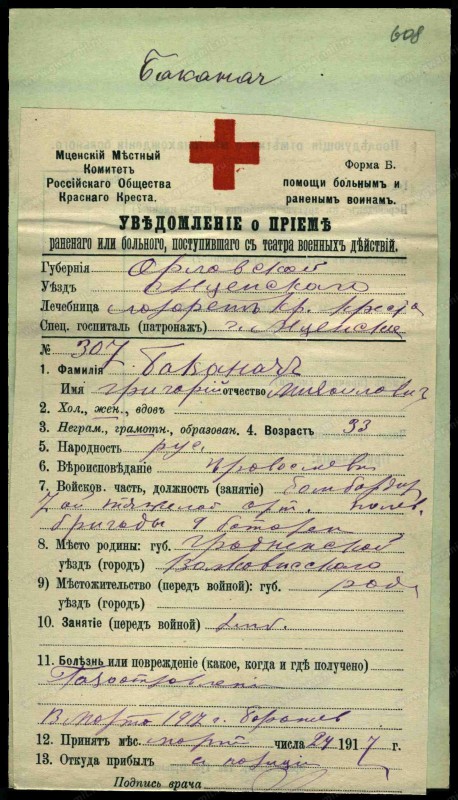 608
Баканач
Мценскій Мѣстный
Комитет
Россійскаго Общества
Краснаго Креста.
Форма В.
помощи больнымъ и
раненымъ воинамъ.
УВѢДОМЛЕНІЕ о ПРІЕМѢ
раненаго или больного, поступившаго съ театра военныхъ дѣйствій.
Губернія Орловской
Уѣздъ Мценскаго
Лечебница лазаретъ Кр. Креста
Спец. госпиталь (патронажъ) г. Мценскѣ
№ 307
1. Фамилія Баканачъ
Имя Григорій отчество Михайловичъ
2. Хол., жен., вдовъ
3. Неграм., грамотн., образован. 4. Возрастъ 33
5. Народность рус.
6. Вѣроисповѣданіе православн
7. Войсков. часть, должность (занятіе) бомбардир
тяжелой арт.
бригады 4 батареи
8. Мѣсто родины: губ. Гродненской
уѣздъ (городъ) Волковысскаго
9) Мѣстожительство (передъ войной): губ.
уѣздъ (городъ)
10. Занятіе (передъ войной)
11. Болѣзнь или поврежденіе (какое, когда и гдѣ получено)
Газоотравленіе
В марта 1917 г.
12. Принятъ мѣс. март числа 24 1917 г.
13. Откуда прибылъ с позиціи
Подпись врача